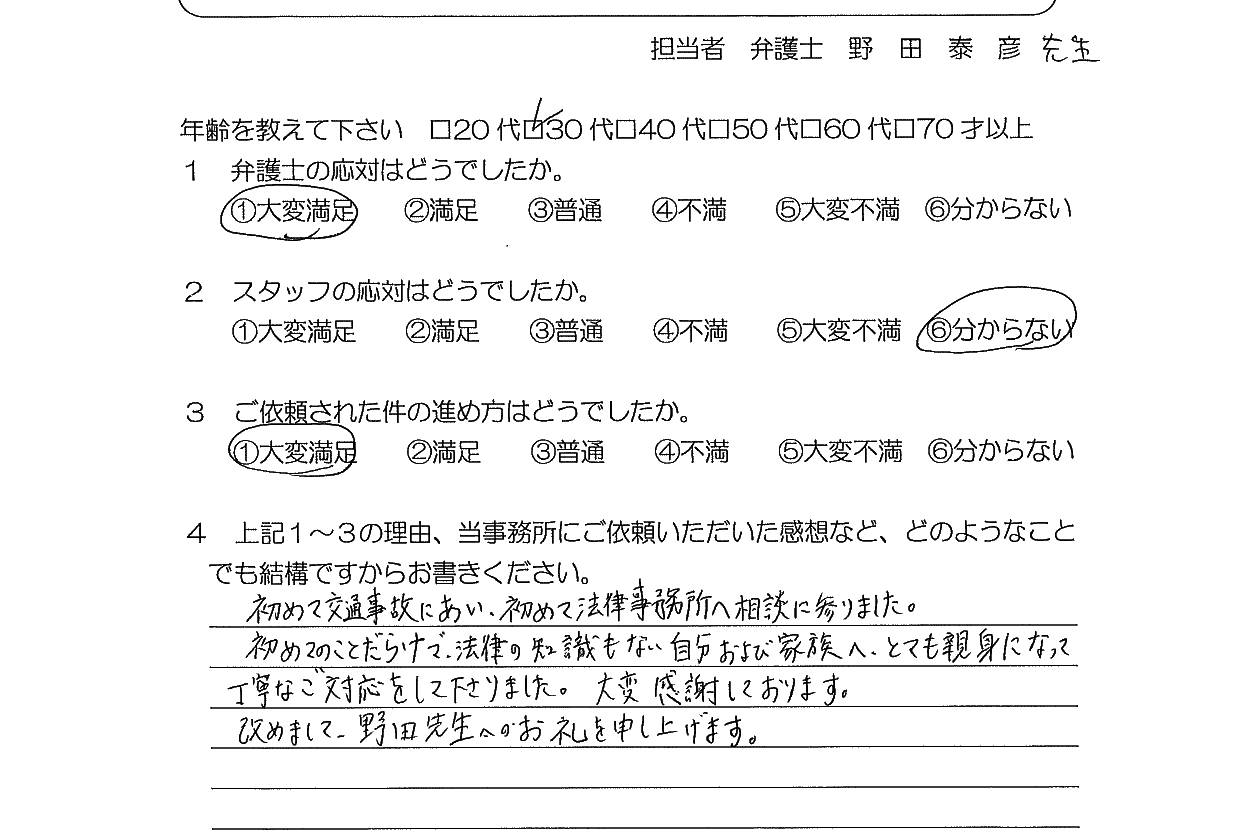 担当者 弁護士 野 田 泰 彦 先生
年齢を教えて下さい □20代□30代□40代□50代□60代□70才以上
1 弁護士の応対はどうでしたか。
①大変満足 ②満足 ③普通 ④不満 ⑤大変不満 ⑥分からない
2 スタッフの応対はどうでしたか。
①大変満足 ②満足 ③普通 ④不満 ⑤大変不満 ⑥分からない
3 ご依頼された件の進め方はどうでしたか。
①大変満足 ②満足 ③普通 ④不満 ⑤大変不満 ⑥分からない
4 上記1～3の理由、当事務所にご依頼いただいた感想など、どのようなこと
でも結構ですからお書きください。
初めて交通事故にあい、初めて法律事務所へ相談に参りました。
初めてのことだらけで、法律の知識もない自分および家族へ、とても親身になって
丁寧なご対応をして下さりました。大変感謝しております。
改めまして、野田先生へのお礼を申し上げます。